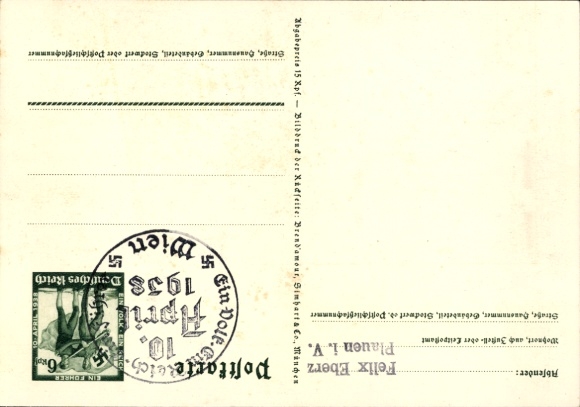 Absender:
Felix Eberz
Plauen i. V.
Wohnort, auch Zustell- oder Leitpostamt
Straße, Hausnummer, Gebäudeteil, Stockwerk od. Postschließfachnummer
Abgabepreis 15 Rpf. — Bilddruck der Rückseite: Brend'amour, Simhart & Co. München
Postkarte
EIN FÜHRER
6 Rpf
EIN VOLK EIN REICH
10. APRIL 1938
Deutsches Reich
Ein Volk, Ein Reich,
10.
April
1938
Wien
Straße, Hausnummer, Gebäudeteil, Stockwerk oder Postschließfachnummer